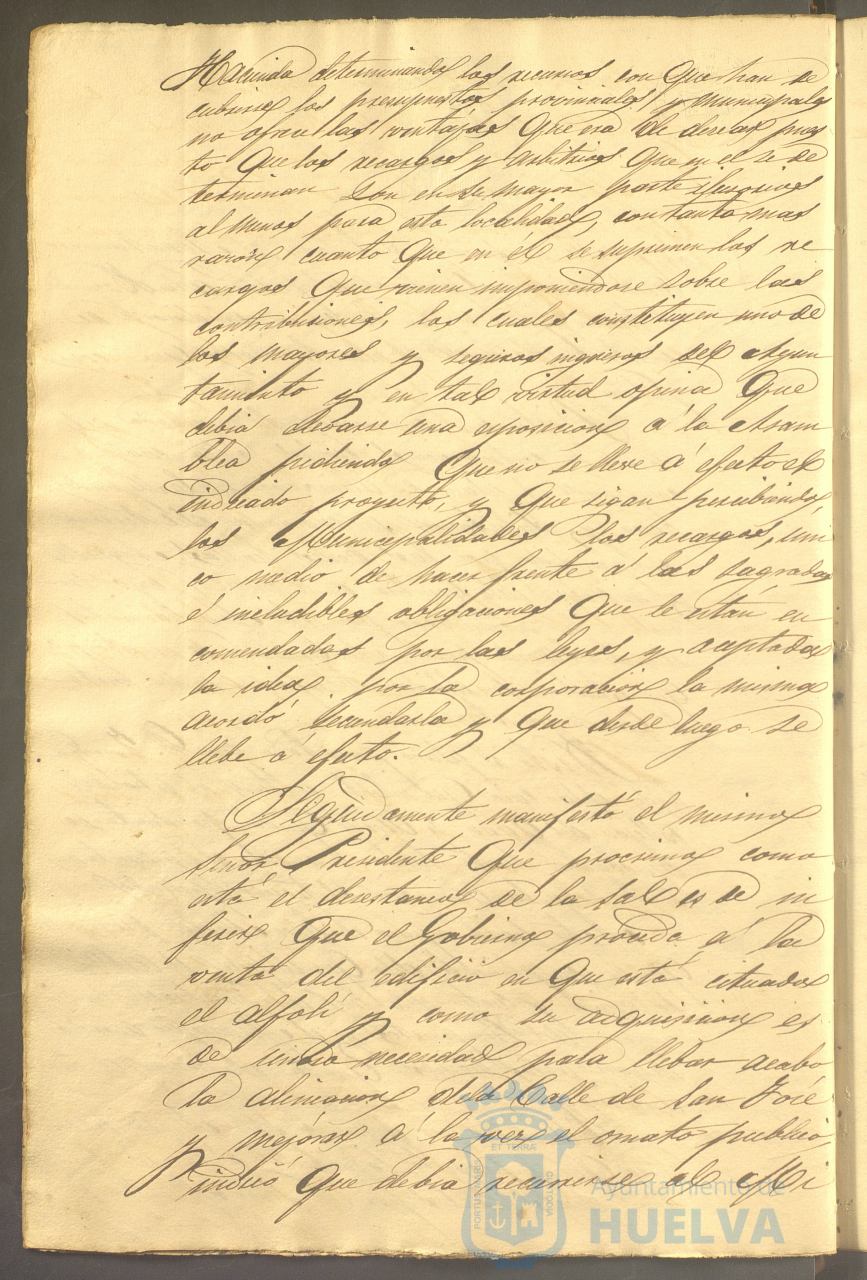 Hacienda determinando los recursos con que han de
cubrirse los presupuestos provinciales y municipales
no ofrece las ventajas que era de desear pues
to que los recargos y arbitrios que en el se de
terminan son en su mayor parte ilusorios
al menos para esta localidad, con tanto mas
razon cuanto que en él se suprimen los re
cargos que vienen imponiendose sobre las
contribuciones, los cuales constituyen uno de
los mayores y seguros ingresos del Ayun
tamiento y en tal virtud opina que
debia elebarse una esposicion á la Asam
blea pidiendo que no se lleve á efecto el
indicado proyecto, y que sigan percibiendo
los Municipalidades los recargos, uni
co medio de hacer frente á las sagradas
é ineludibles obligaciones que le están en
comendadas por las leyes, y aceptada
la idea por la corporacion la misma
acordó secundarla y que desde luego se
llebe á efecto.
Seguidamente manifestó el mismo
Señor Presidente que procsimo como
está el desestanco de la sal es de in
ferir que el Gobierno proceda á la
venta del edificio en que está situado
el alfolí y como su adquisicion es
de suma necesidad para llebar acabo
la alineacion de la Calle de San José
y mejorar á la vez el ornato publico,
indicó que debia recurrirse al Mi
PORTUS MARIS
ET TERRÆ
CUSTODIA
Ayuntamiento de
HUELVA